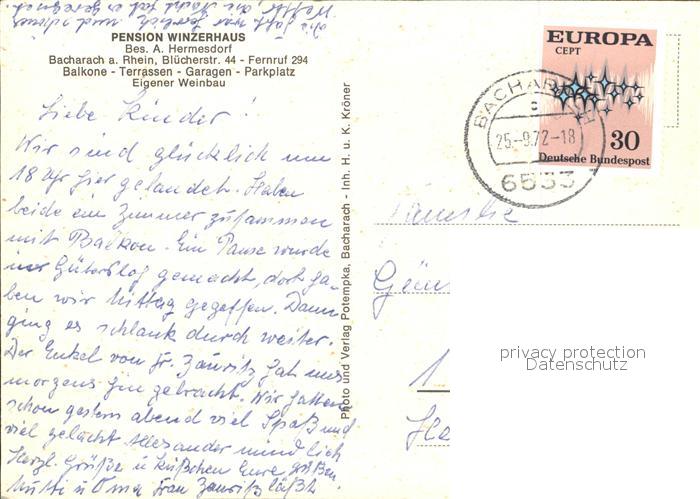 PENSION WINZERHAUS
Bes. A. Hermesdorf
Bacharach a. Rhein, Blücherstr. 44 - Fernruf 294
Balkone - Terrassen - Garagen - Parkplatz
Eigener Weinbau
Liebe Kinder!
Wir sind glücklich um
18 Uhr hier gelandet. Haben
beide ein Zimmer zusammen
mit Balkon. Ein Pause wurde
in Gütersloh gemacht, dort ha-
ben wir Mittag gegessen. Dann
ging es schlank durch weiter.
Der Enkel von Fr. hat uns
morgens hin gebracht. Wir hatten
schon gestern abend viel Spaß und
viel gelacht alles ander mündlich
Herzl. Grüße u Küßchen Eure
Mutti u Oma Frau läßt
Photo und Verlag Potempka, Bacharach - Inh. H. u. K. Kröner
EUROPA
CEPT
30
Deutsche Bundespost
BACHARACH
25.-9.72-18
6533
Familie
privacy protection
Datenschutz